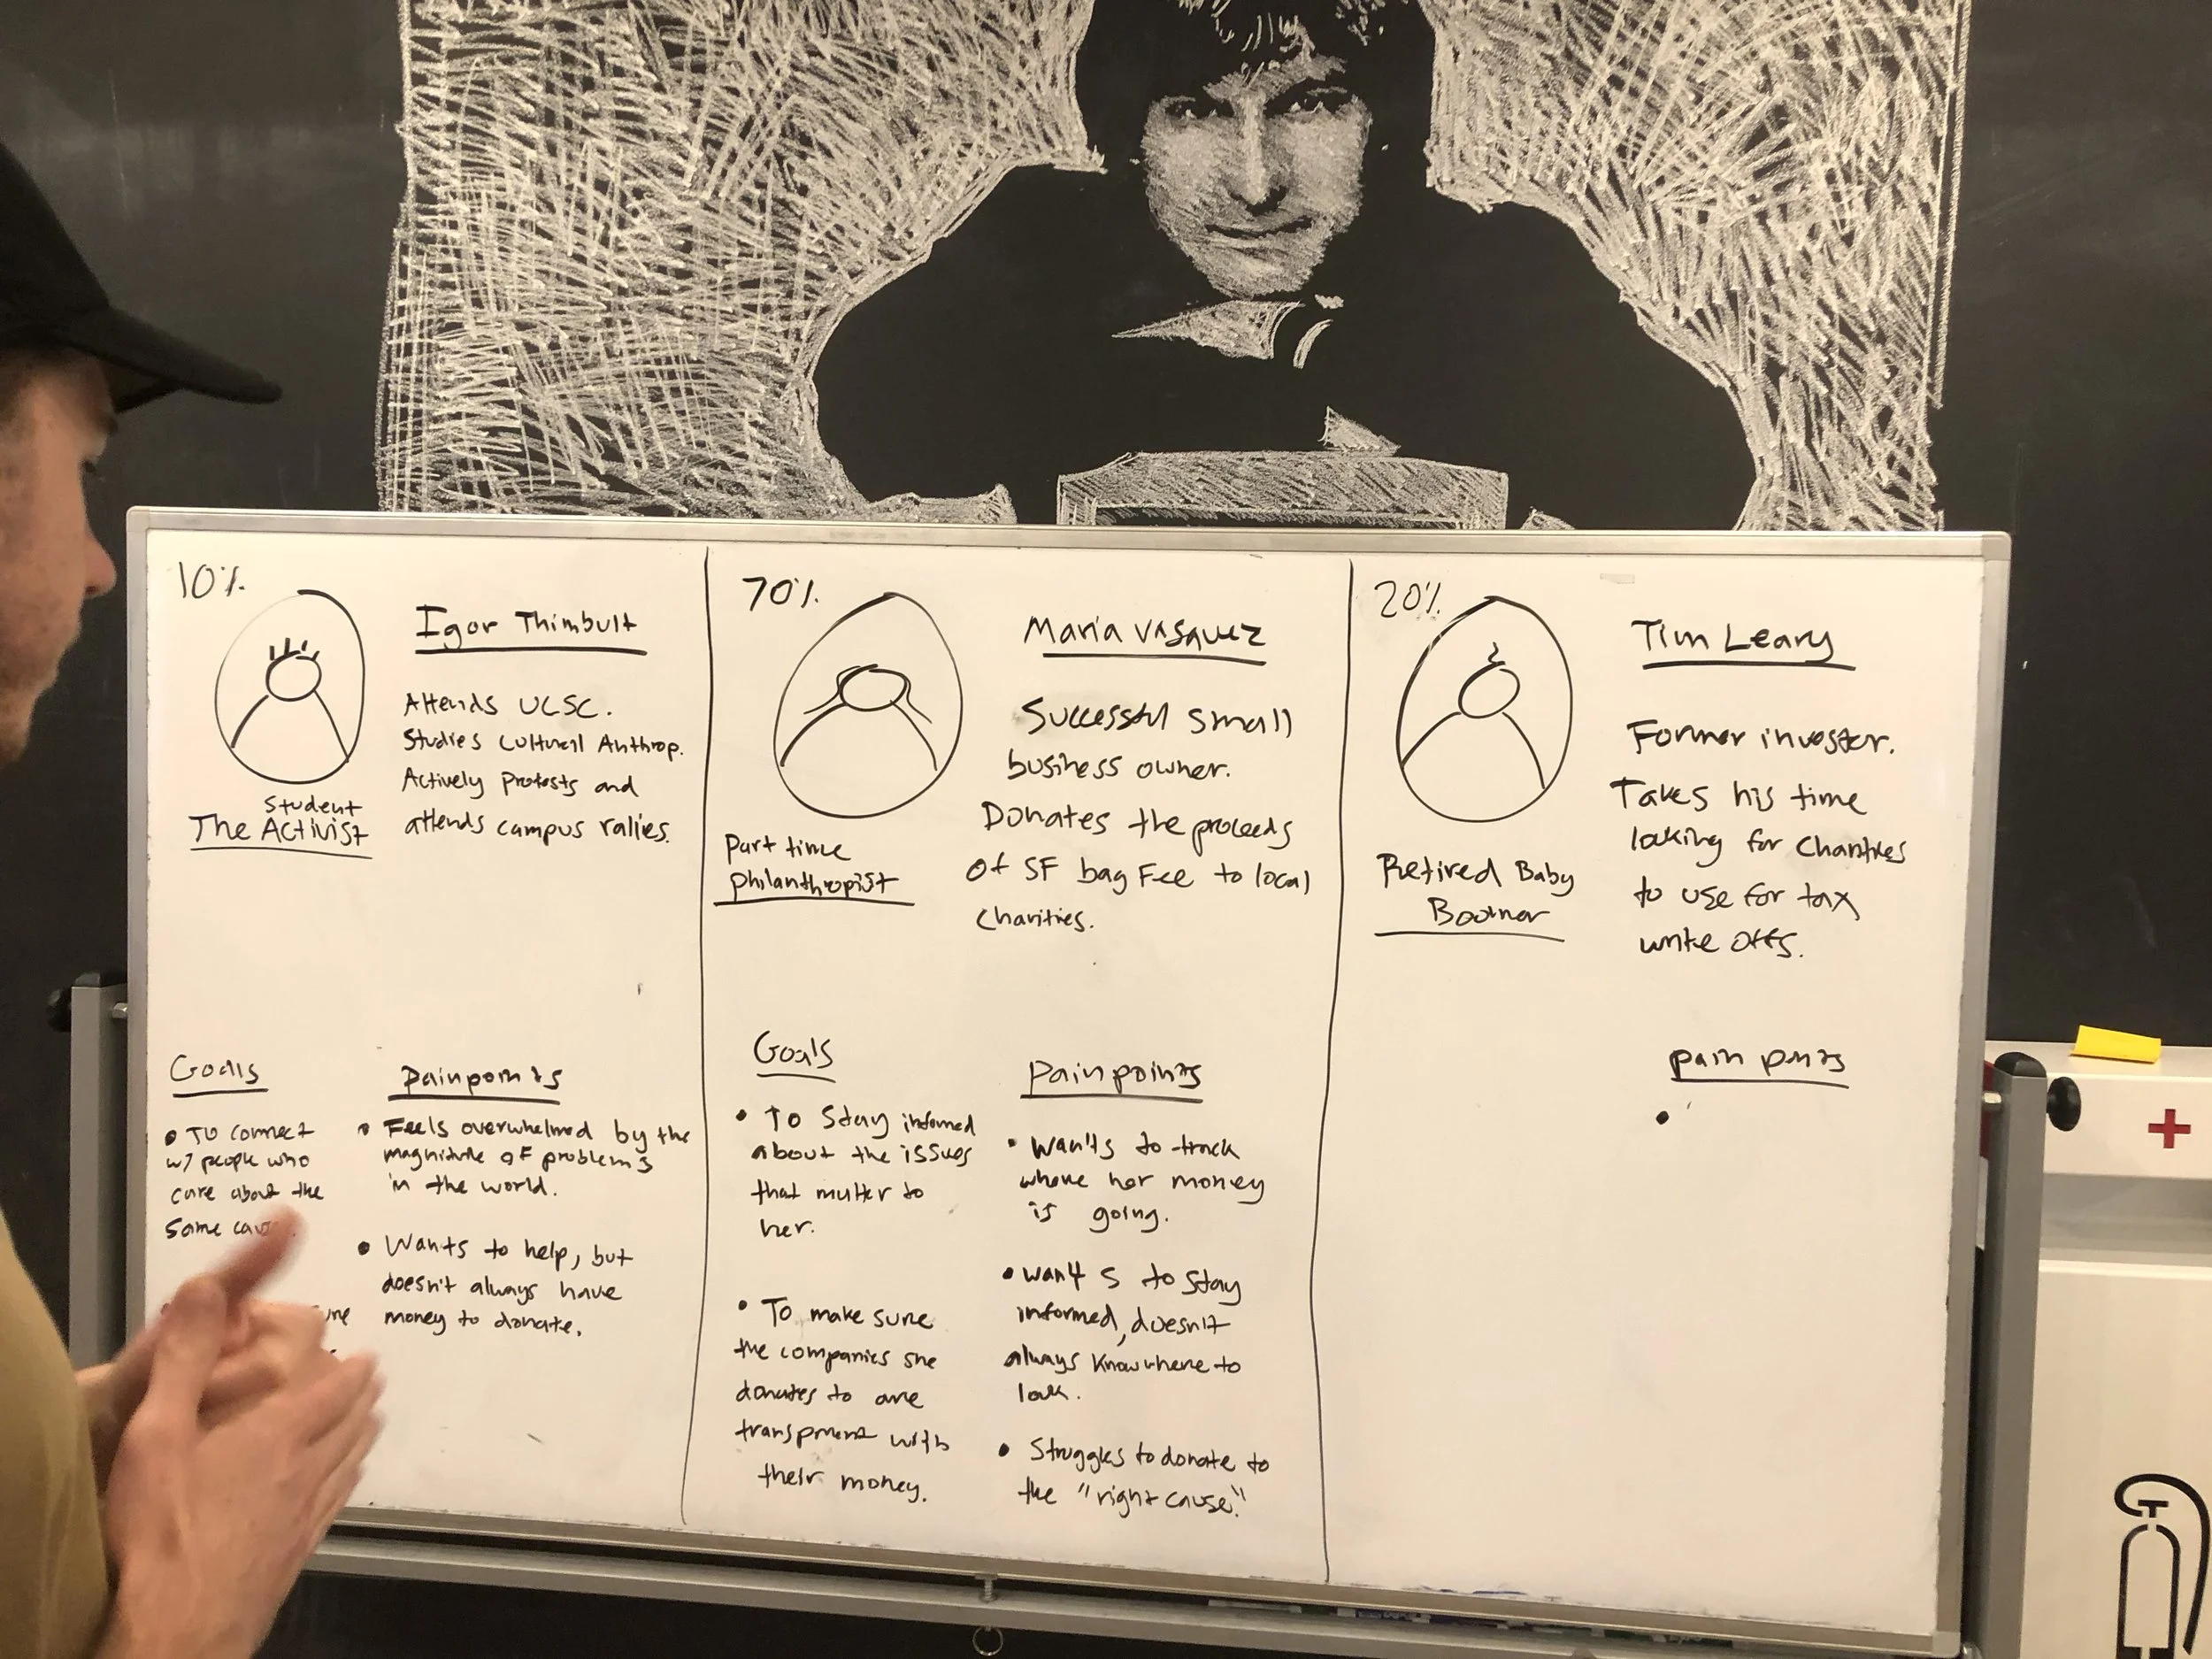 10%
Igor Thimbult
Attends UCSC.
Studies Cultural Anthrop.
Actively protests and
attends campus ralies.
Student
The Activist
Goals
• To connect
w/ people who
care about the
Same
Painpoints
• Feels overwhelmed by the
magnitude of problems
in the world.
• Wants to help, but
doesn't always have
money to donate.
70%
Maria Vasquez
Successful small
business owner.
Donates the proceeds
of SF bag Fee to local
Charities.
Part time
philanthropist
Goals
• To Stay informed
about the issues
that matter to
her.
• To make sure
the companies she
donates to are
transparent with
their money.
Painpoints
• Wants to track
where her money
is going.
• Wants to stay
informed, doesn't
always know where to
look.
• Struggles to donate to
the "right cause."
20%
Tim Leary
Former investor.
Takes his time
looking for Charities
to use for tax
write offs.
Retired Baby
Boomer
pain points
•